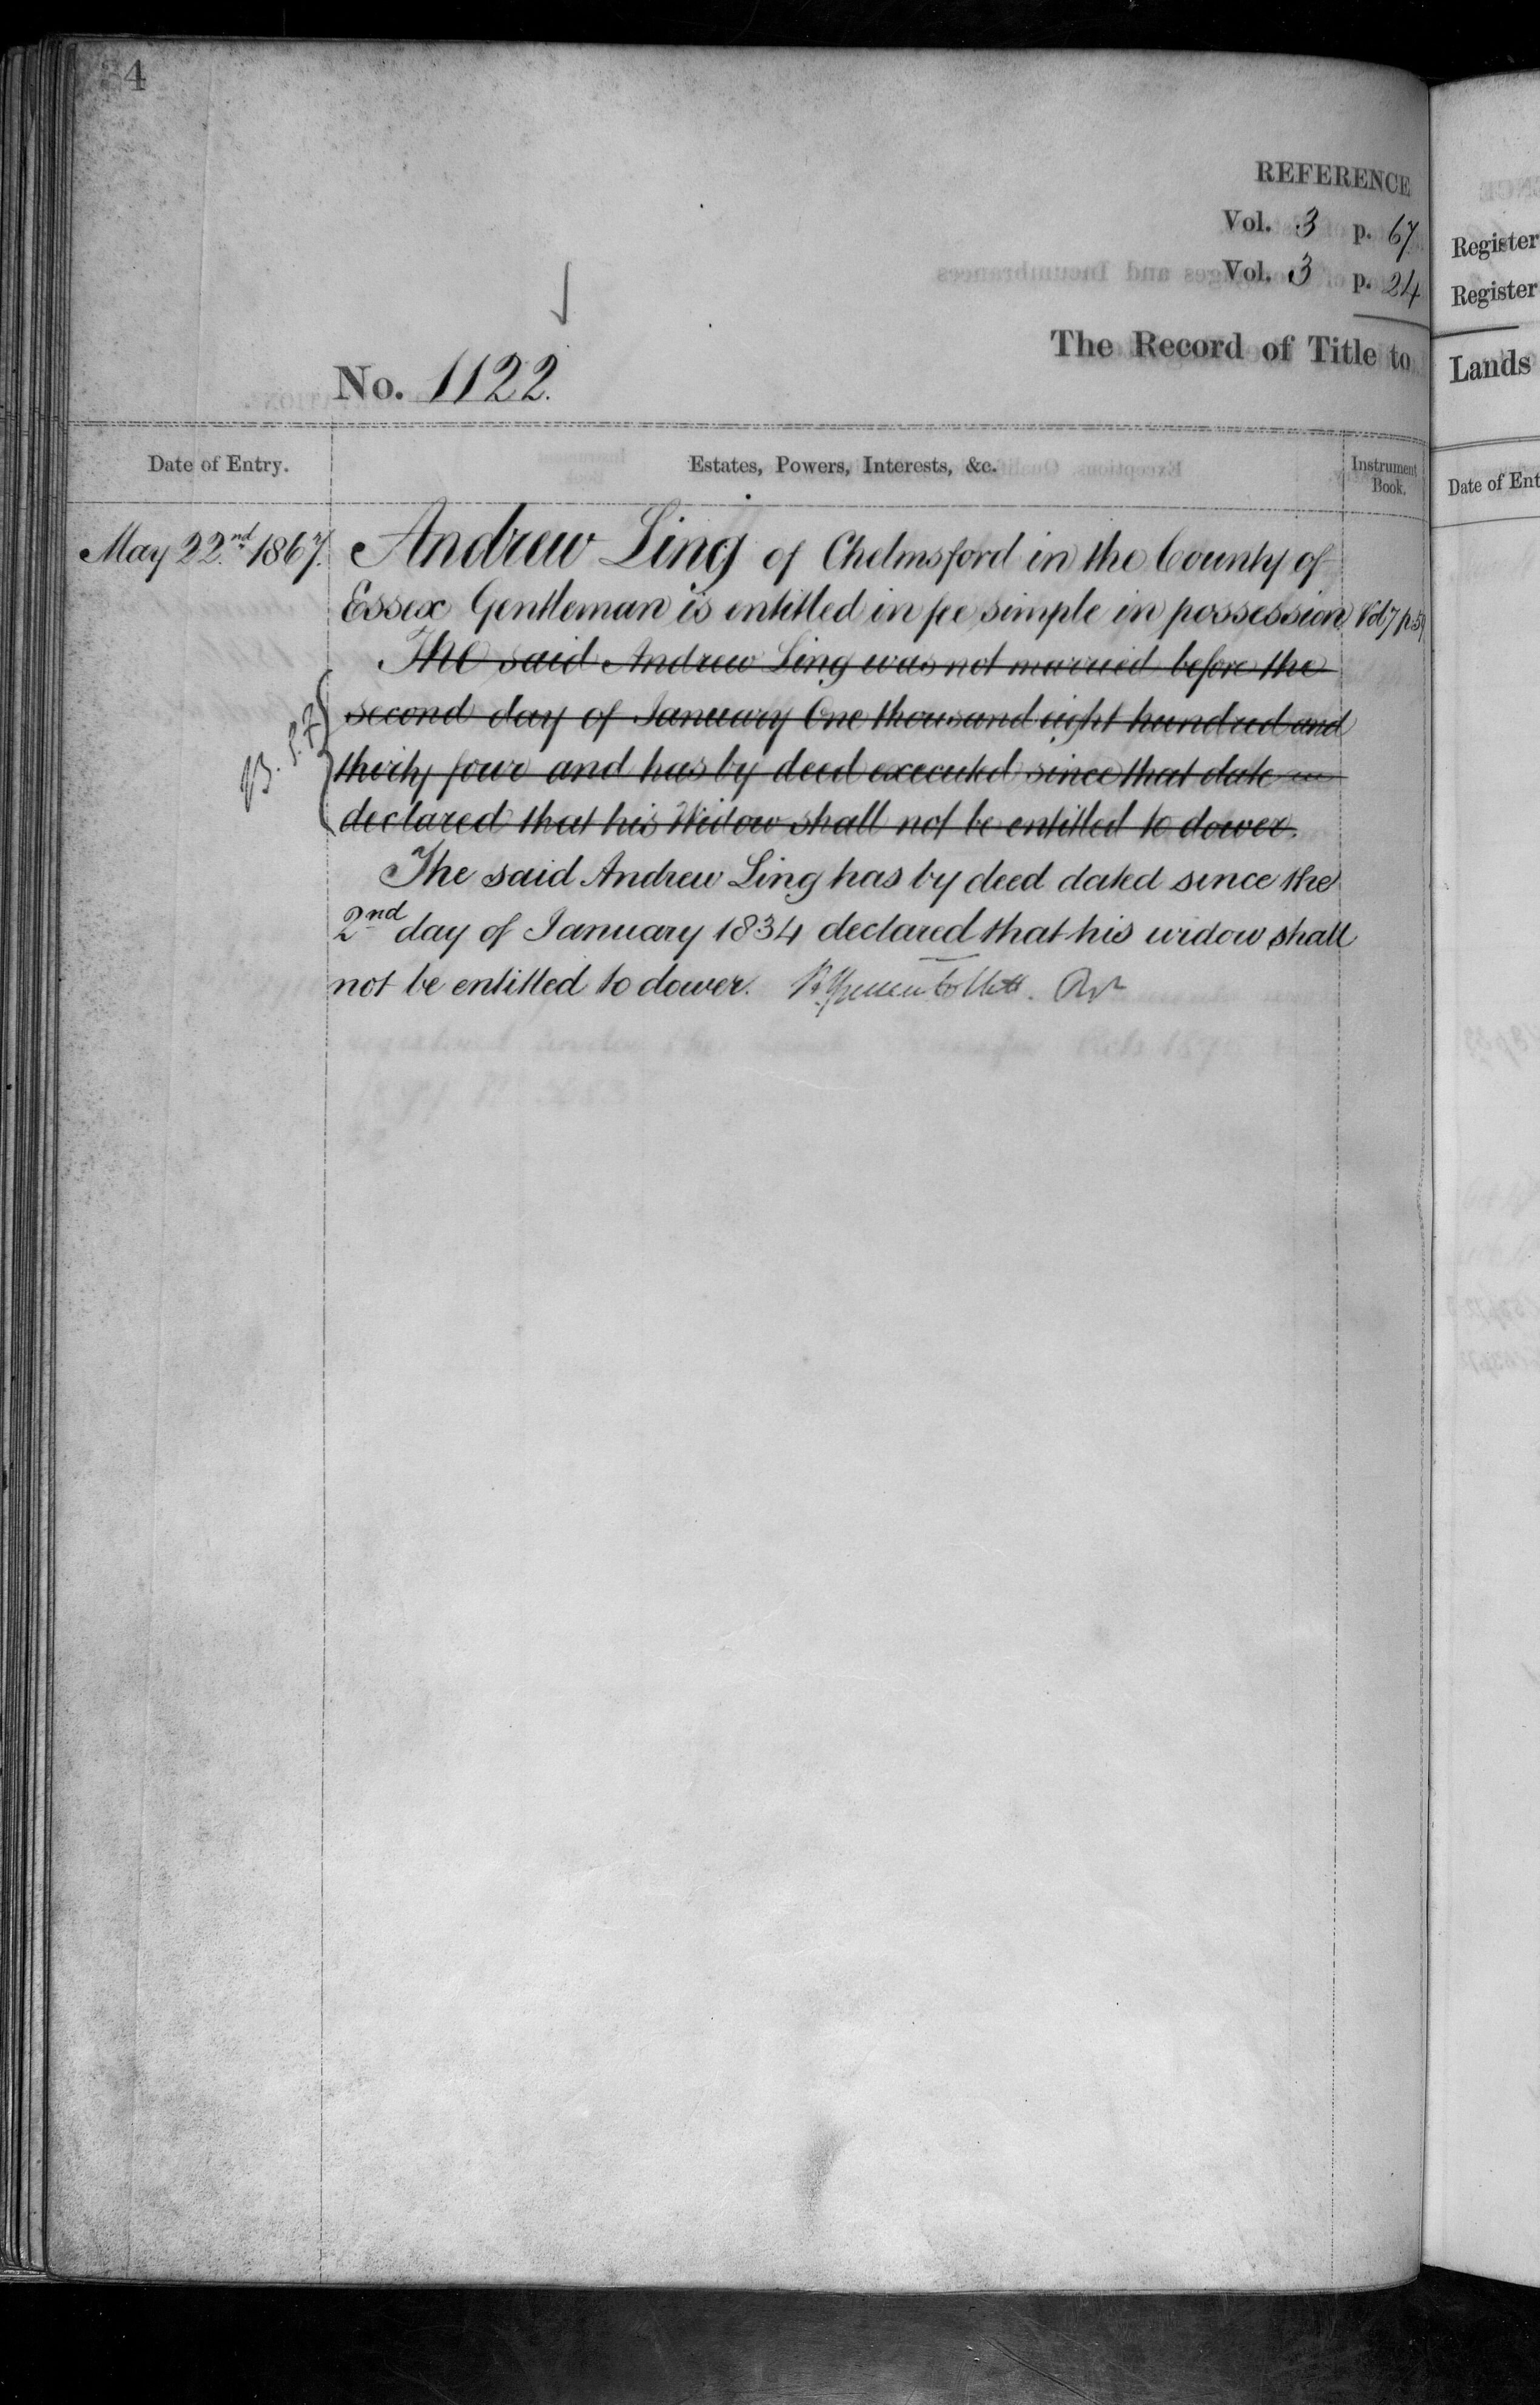 4
REFERENCE
Vol. 3 p. 67
Vol. 3 p. 24
Register
Register
The Record of Title to
Lands
No. 1122.
Date of Entry.
Estates, Powers, Interests, &c.
Instrument Book.
Date of Ent
May 22.nd 1867.
Andrew Ling of Chelmsford in the County of
Essex Gentleman is entitled in fee simple in possession
The said Andrew Ling was not married before the
second day of January One thousand eight hundred and
thirty four and has by deed executed since that date
declared that his Widow shall not be entitled to dower.
The said Andrew Ling has by deed dated since the
2nd day of January 1834 declared that his widow shall
not be entitled to dower.